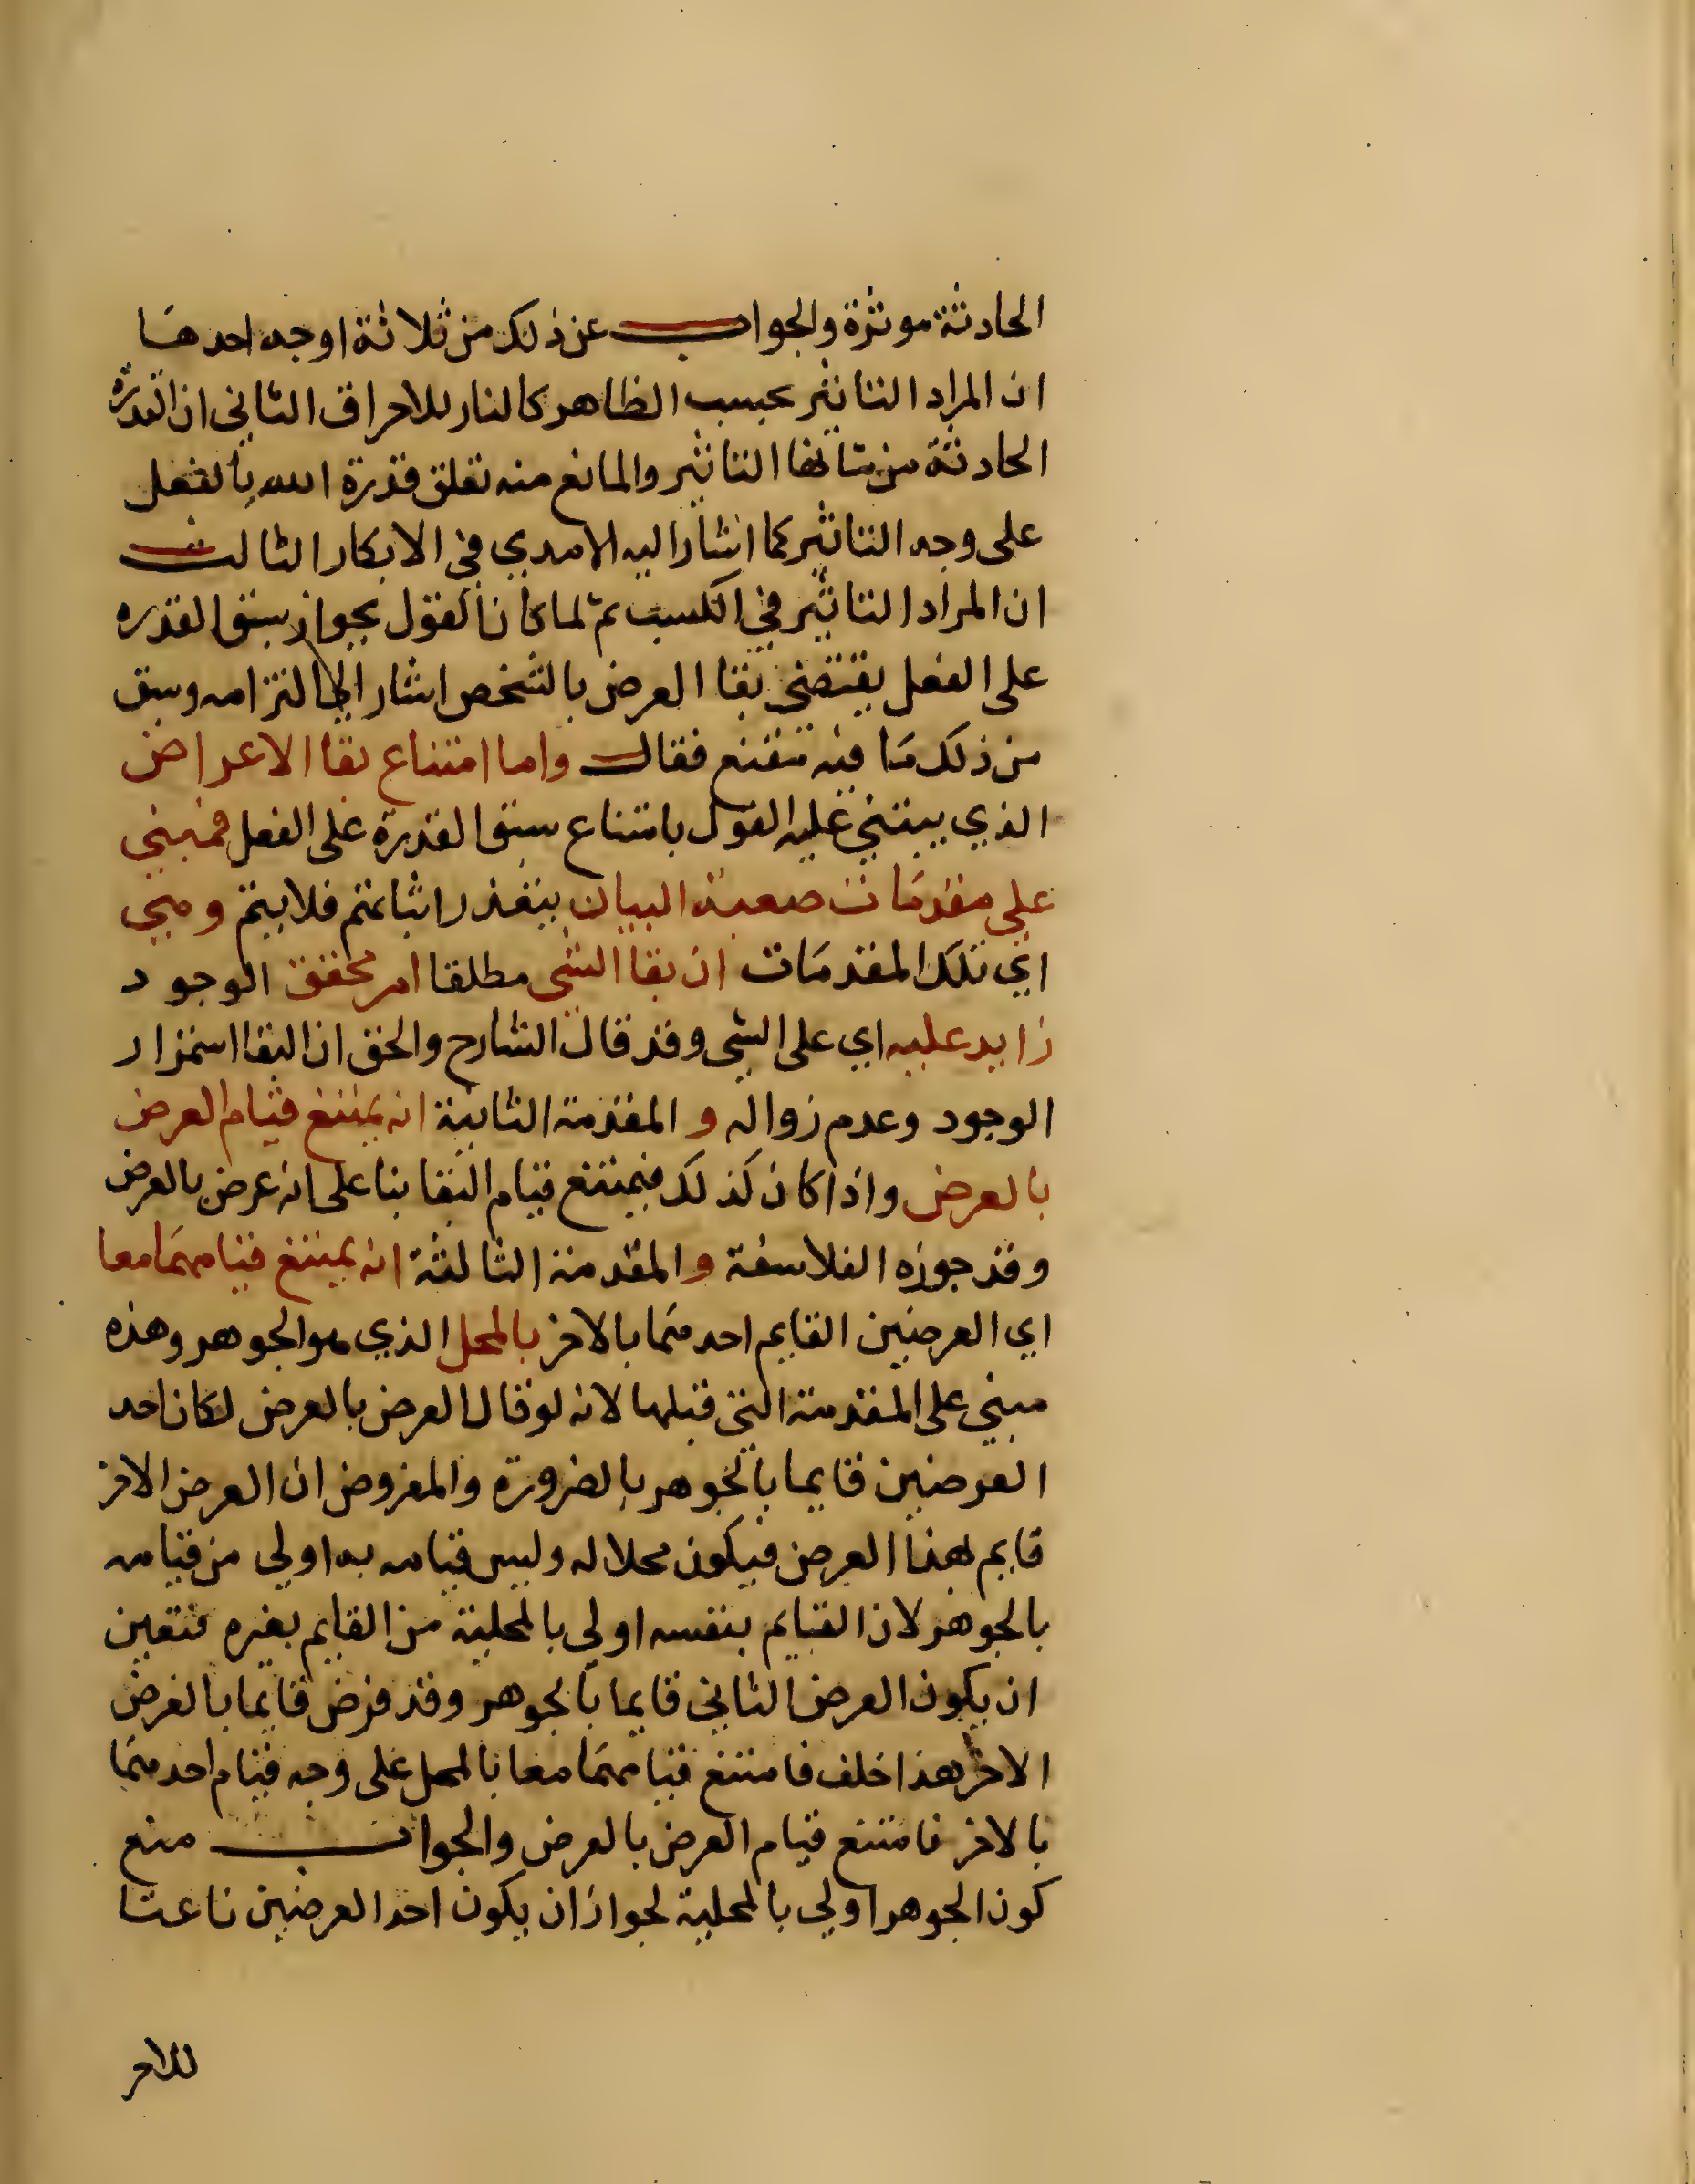 الحادثة موثرة والجواب عن ذلك من ثلاثة اوجه احدها
ان المراد التاثير بحسب الظاهر كالنار للاحراق الثاني ان القدرة
الحادثة من شانها التاثير والمانع منه تعلق قدرة الله بالفعل
على وجه التاثير كما اشار اليه الامدي في الابكار الثالث
ان المراد التاثير في الكسب ثم لما كان القول بجواز سبق القدره
على الفعل يقتضي بقا العرض بالشخص اشار الى التزامه وسبق
من ذلك ما فيه مقنع فقال واما امتناع بقا الاعراض
الذي يبتني عليه القول بامتناع سبق القدرة على الفعل فمبني
على مقدمات صعبة البيان يتعذر اثباتهم فلا يتم وهي
اي تلك المقدمات ان بقا الشي مطلقا امر محقق الوجود
زايد عليه اي على الشي وقد قال الشارح والحق ان البقا استمرار
الوجود وعدم زواله و المقدمة الثانية انه يمتنع قيام العرض
بالعرض واذا كان كذلك فيمتنع قيام البقا بنا على انه عرض بالعرض
وقد جوزه الفلاسفة و المقدمة الثالثة انه يمتنع قيامهما معا
اي العرضين القايم احدهما بالاخر بالمحل الذي هو الجوهر وهذه
مبني على المقدمة التي قبلها لانه لو قال العرض بالعرض لكان احد
العرضين قايما بالجوهر بالضرورة والمفروض ان العرض الاخر
قايم بهذا العرض فيكون محلا له وليس قيامه به اولى من قيامه
بالجوهر لان القيايم بنفسه اولى بالمحلية من القايم بغيره فتعين
ان يكون العرض الثاني قايما بالجوهر وقد فرض قايما بالعرض
الاخر هذا خلف فامتنع قيامهما معا بالمحل على وجه قيام احدهما
بالاخر فامتنع قيام العرض بالعرض والجواب منع
كون الجوهر اولى بالمحلية لجواز ان يكون احد العرضين ناعتا
للاخر